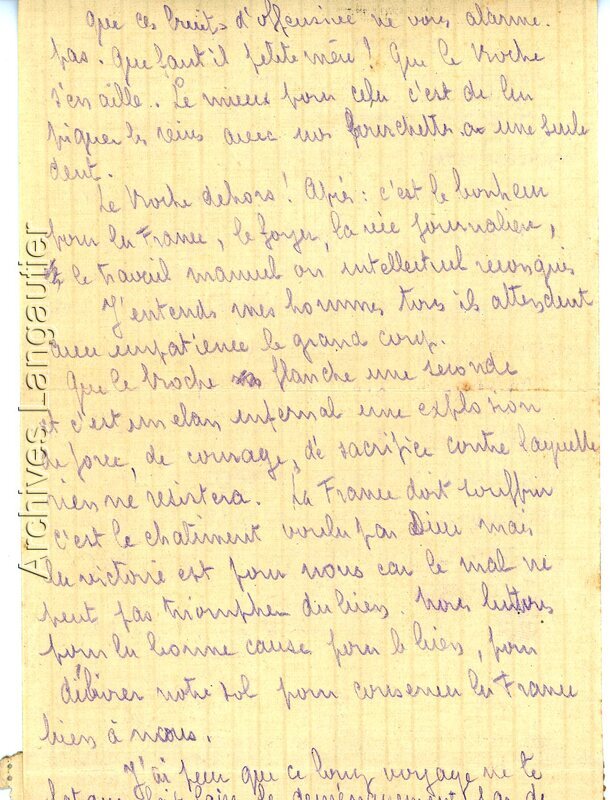 que ces bruits d'offensive ne vous alarme
pas. Que faut il petite mère! Que le Boche
s'en aille. Le mieux pour celu c'est de leu
piquer les reins avec nos fourchettes a une seule
dent.
Le Boche dehors! Après: c'est le bonheur
pour la France, le foyer, la vie journalière,
le travail manuel ou intellectuel reconquis
J'entends mes hommes tous ils attendent
avec impatience le grand coup.
Que le Boche flanche une seconde
et c'est un elan infernal une explosion
de force, de courage, de sacrifice contre laquelle
rien ne resistera. La France doit souffrir
c'est le chatiment voulu par Dieu mais
la victoire est pour nous car le mal ne
peut pas triompher du bien. Nous luttons
pour la bonne cause pour le bien, pour
délivrer notre sol pour conserver la France
bien à nous.
J'ai peur que ce long voyage ne te
Archives Langautier